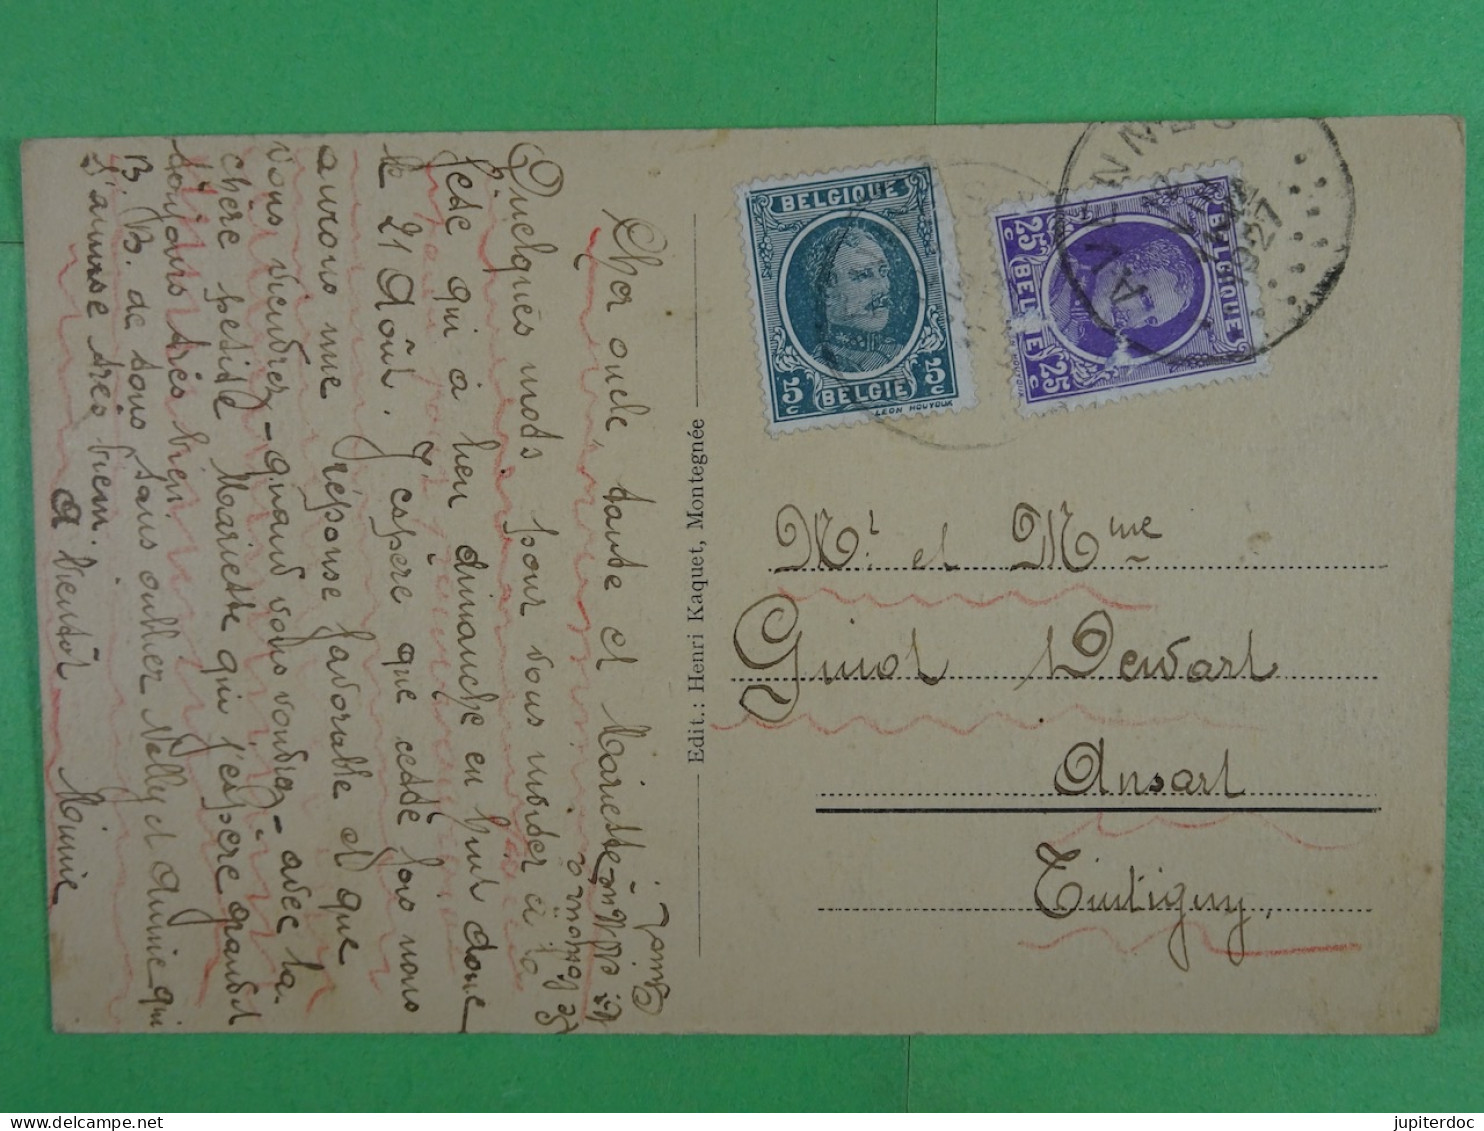 Cher oncle, tante et Mariette
Quelques mots pour vous inviter à la
fête qui a lieu dimanche en huit donc
le 21 Août. J'espère que cette fois nous
aurons une réponse favorable et que
vous viendrez - quand vous voudrez - avec la
chère petite Mariette qui j'espère grandit
toujours très bien
B. B. de tous sans oublier Nelly et Annie qui
s'amuse très bien.
à bientôt Mimie
Mr et Mme
Guiot
Edit.: Henri Kaquet, Montegnée
BELGIQUE
5c 5c
BELGIE
LEON HOUYOUX
BELGIQUE
25c BELGIE 25c
AVENNES
1927
Mr. et Mme
Guiot Dewart
Ansart
Tintigny
jupiterdoc